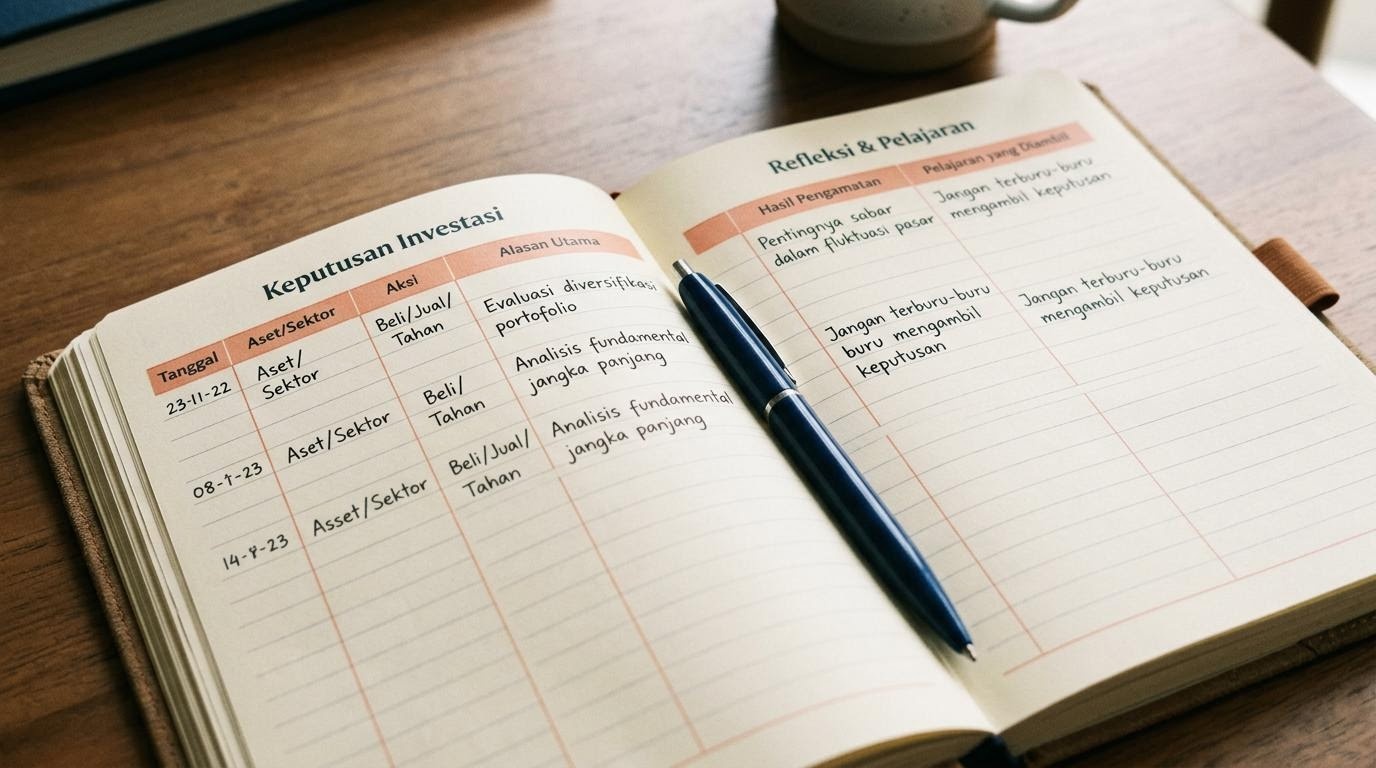 Keputusan Investasi
Tanggal Aset/Sektor Aksi Alasan Utama
23-11-22
Aset/
Sektor
Beli/Jual/
Tahan
Evaluasi diversifikasi
portofolio
Aset/Sektor
Beli/
Tahan
Analisis fundamental
jangka panjang
Asset/Sektor
Beli/Jual/
Tahan
Analisis fundamental
jangka panjang
Refleksi & Pelajaran
Hasil Pengamatan Pelajaran yang Diambil
Pentingnya sabar
dalam fluktuasi pasar
Jangan terburu-buru
mengambil keputusan
Jangan terburu-buru
buru mengambil
keputusan
Jangan terburu-buru
mengambil keputusan